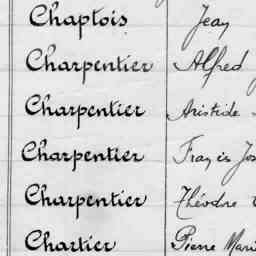 Chaptois Jean
Charpentier Alfred
Charpentier Aristide
Charpentier Francis Jos
Charpentier Théodore
Chartier Pierre Mari